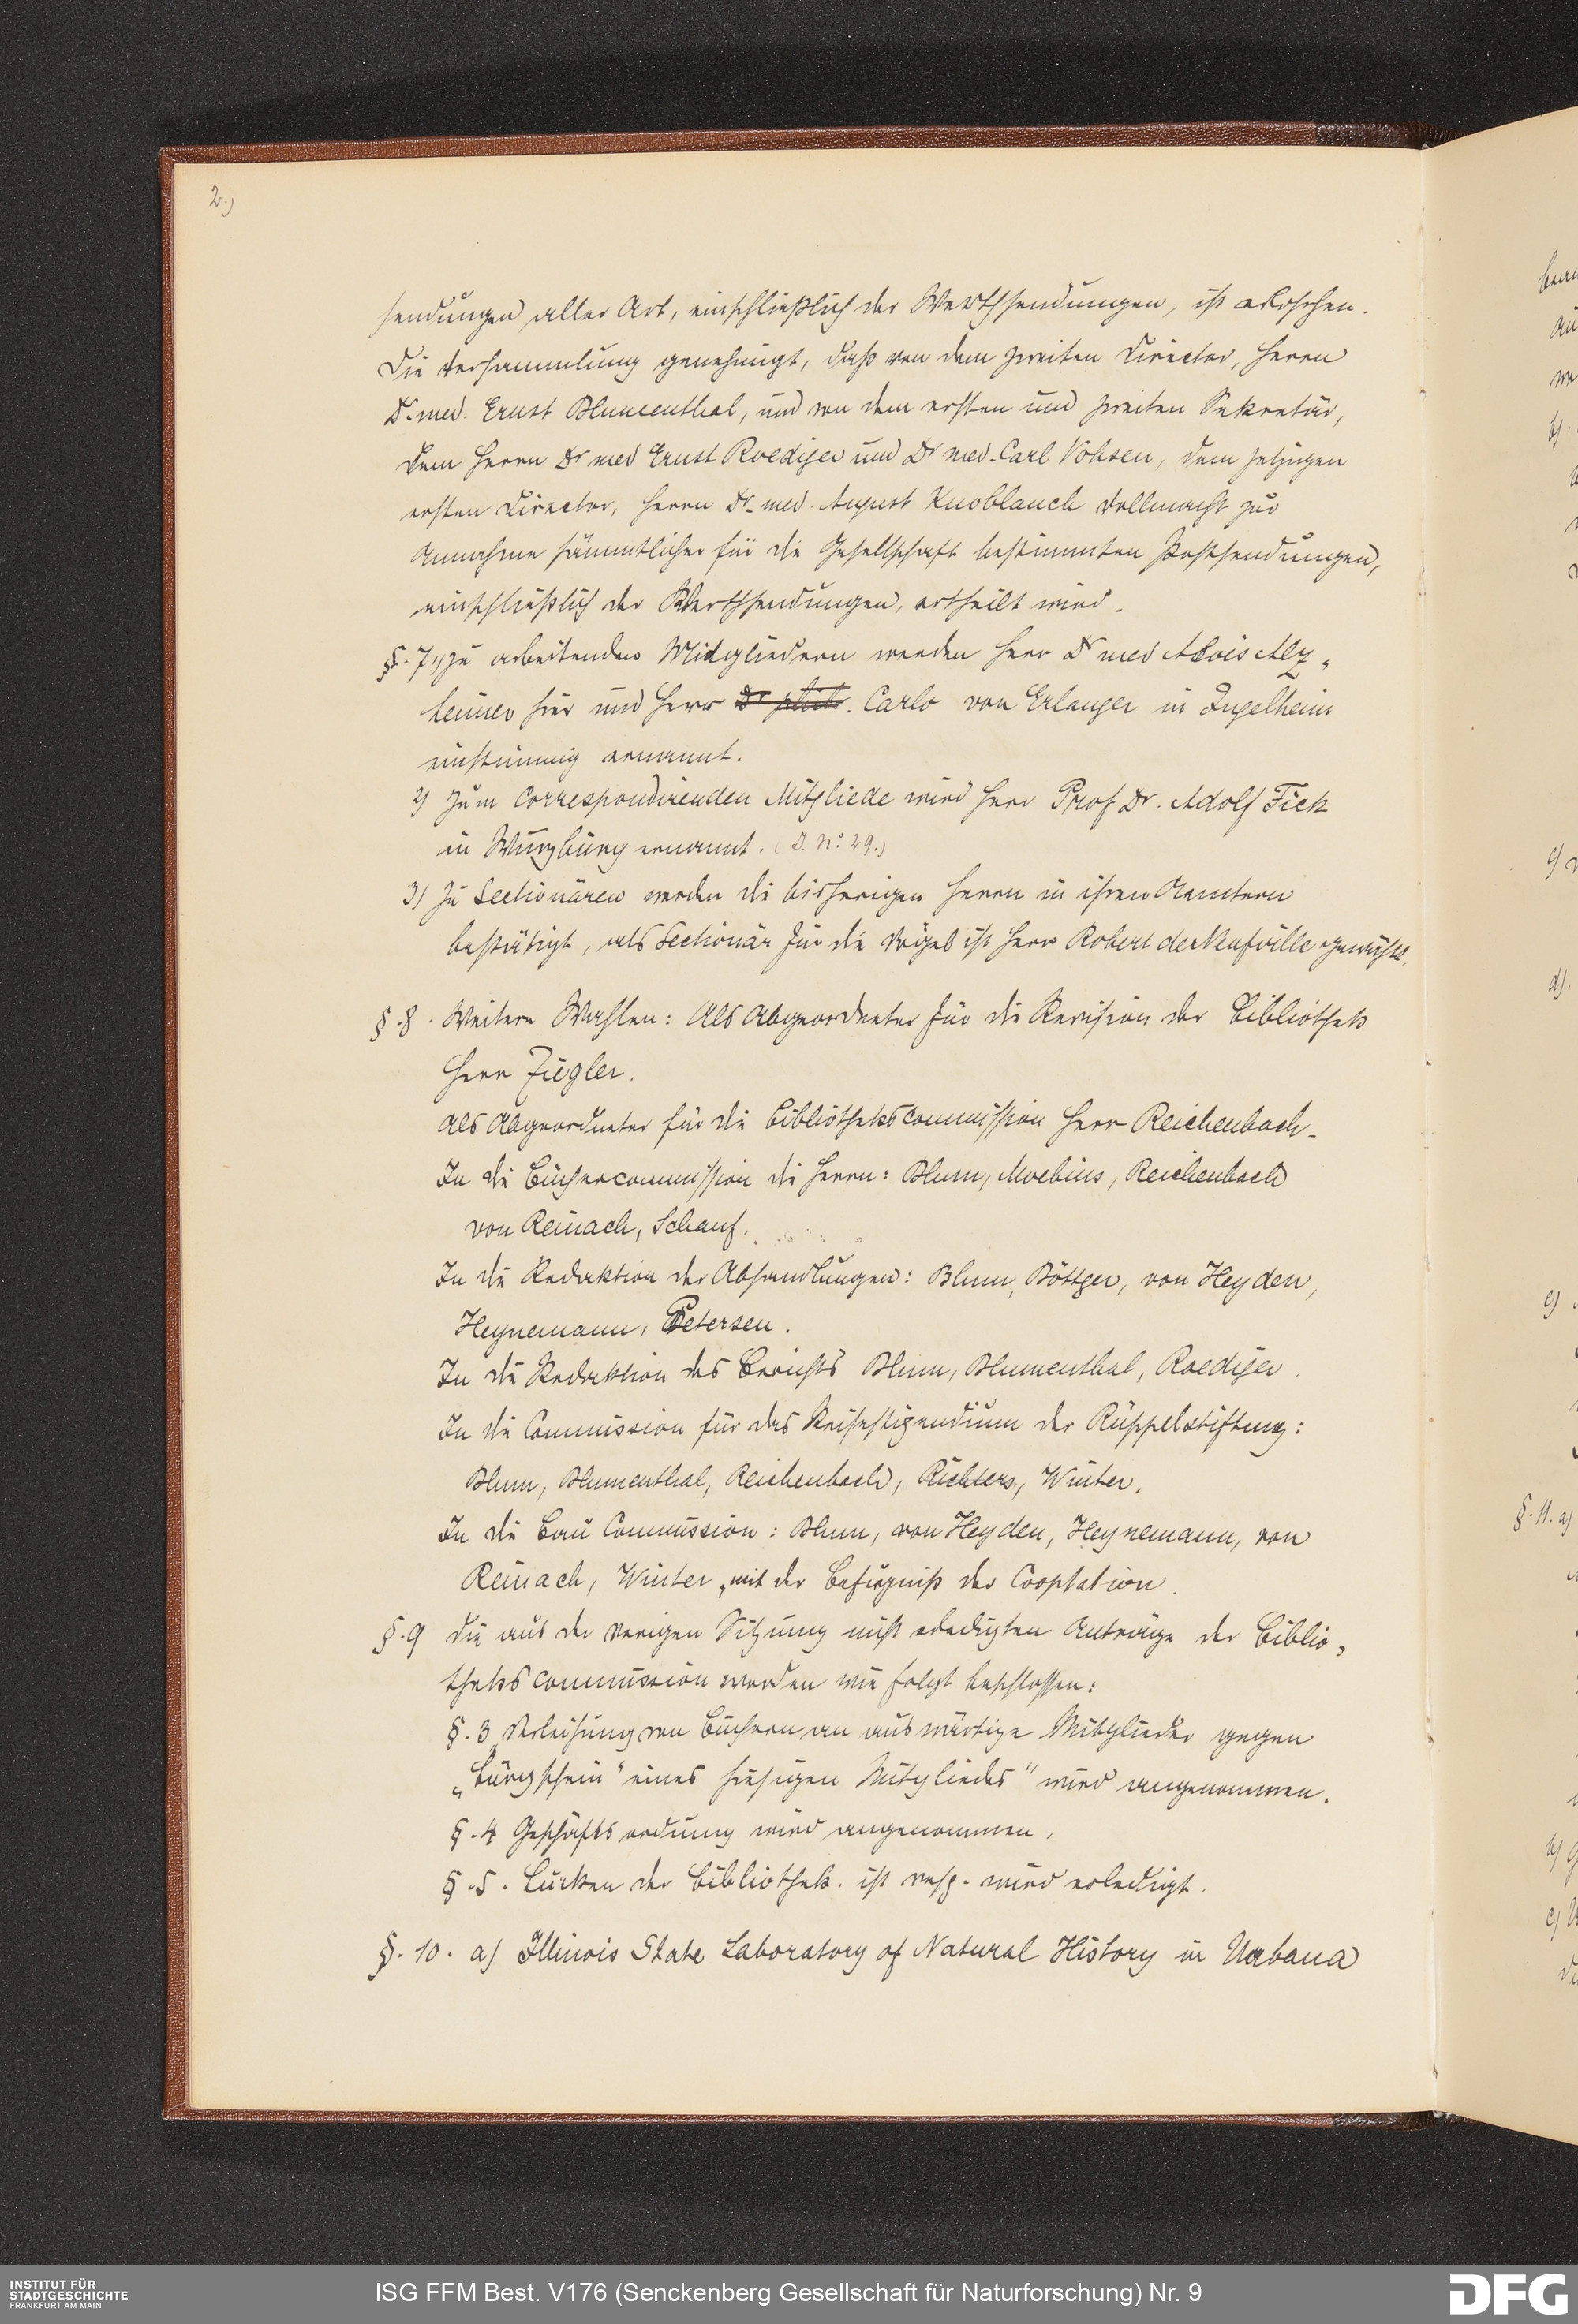 2.)
sendungen aller Art, einschließlich der Werthsendungen, ist erloschen.
Die Versammlung genehmigt, daß von dem zweiten Director, Herrn
Dr. med. Ernst Blumenthal, und von dem ersten und zweiten Sekretär,
dem Herrn Dr med Ernst Roediger und Dr med. Carl Vohsen, dem jetzigen
ersten Director, Herrn Dr. med. August Knoblauch Vollmacht zur
Annahme sämmtlicher für die Gesellschaft bestimmten Postsendungen,
einschließlich der Werthsendungen, ertheilt wird.
§. 7. 1) Zu arbeitenden Mitgliedern werden Herr Dr med Alois Alz-
heimer hier und Herr Dr phil. Carlo von Erlanger in Ingelheim
einstimmig ernannt.
2) Zum correspondirenden Mitgliede wird Herr Prof Dr. Adolf Fick
in Würzburg ernannt. (D. No. 29.)
3) Zu Sectionären werden die bisherigen Herrn in ihren Aemtern
bestätigt, als Sectionär für die Vögel ist Herr Robert de Neufville gewählt.
§. 8. Weitere Wahlen: Als Abgeordneter für die Revision der Bibliothek
Herr Ziegler.
Als Abgeordneter für die Bibliothekscommission Herr Reichenbach.
In die Büchercommission die Herrn: Blum, Moebius, Reichenbach
von Reinach, Schauf.
In die Redaktion der Abhandlungen: Blum, Böttger, von Heyden,
Heynemann, Petersen.
In die Redaktion des Berichts Blum, Blumenthal, Roediger.
In die Commission für das Reisestipendium der Rüppelstiftung:
Blum, Blumenthal, Reichenbach, Richters, Winter.
In die Bau Commission: Blum, von Heyden, Heynemann, von
Reinach, Winter, mit der Befugniß der Cooptation.
§. 9 Die aus der vorigen Sitzung nicht erledigten Anträge der Biblio-
thekscommission werden wie folgt beschlossen:
§. 3 Verleihung von Büchern an auswärtige Mitglieder gegen
„Bürgschein" eines hiesigen Mitgliedes" wird angenommen.
§. 4 Geschäftsordnung wird angenommen.
§. 5. Lücken der Bibliothek. ist resp. wird erledigt.
§. 10. a) Illinois State Laboratory of Natural History in Urbana
§. 11. a)
INSTITUT FÜR
STADTGESCHICHTE
FRANKFURT AM MAIN
ISG FFM Best. V176 (Senckenberg Gesellschaft für Naturforschung) Nr. 9
DFG